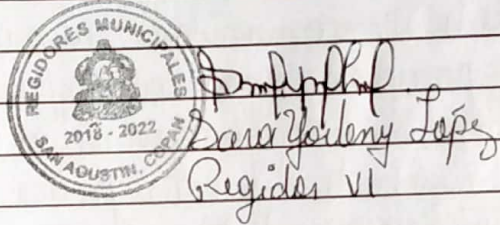 REGIDORES MUNICIPALES
2018 - 2022
SAN AGUSTIN, COPAN
Sara Yorleny López
Regidor VI